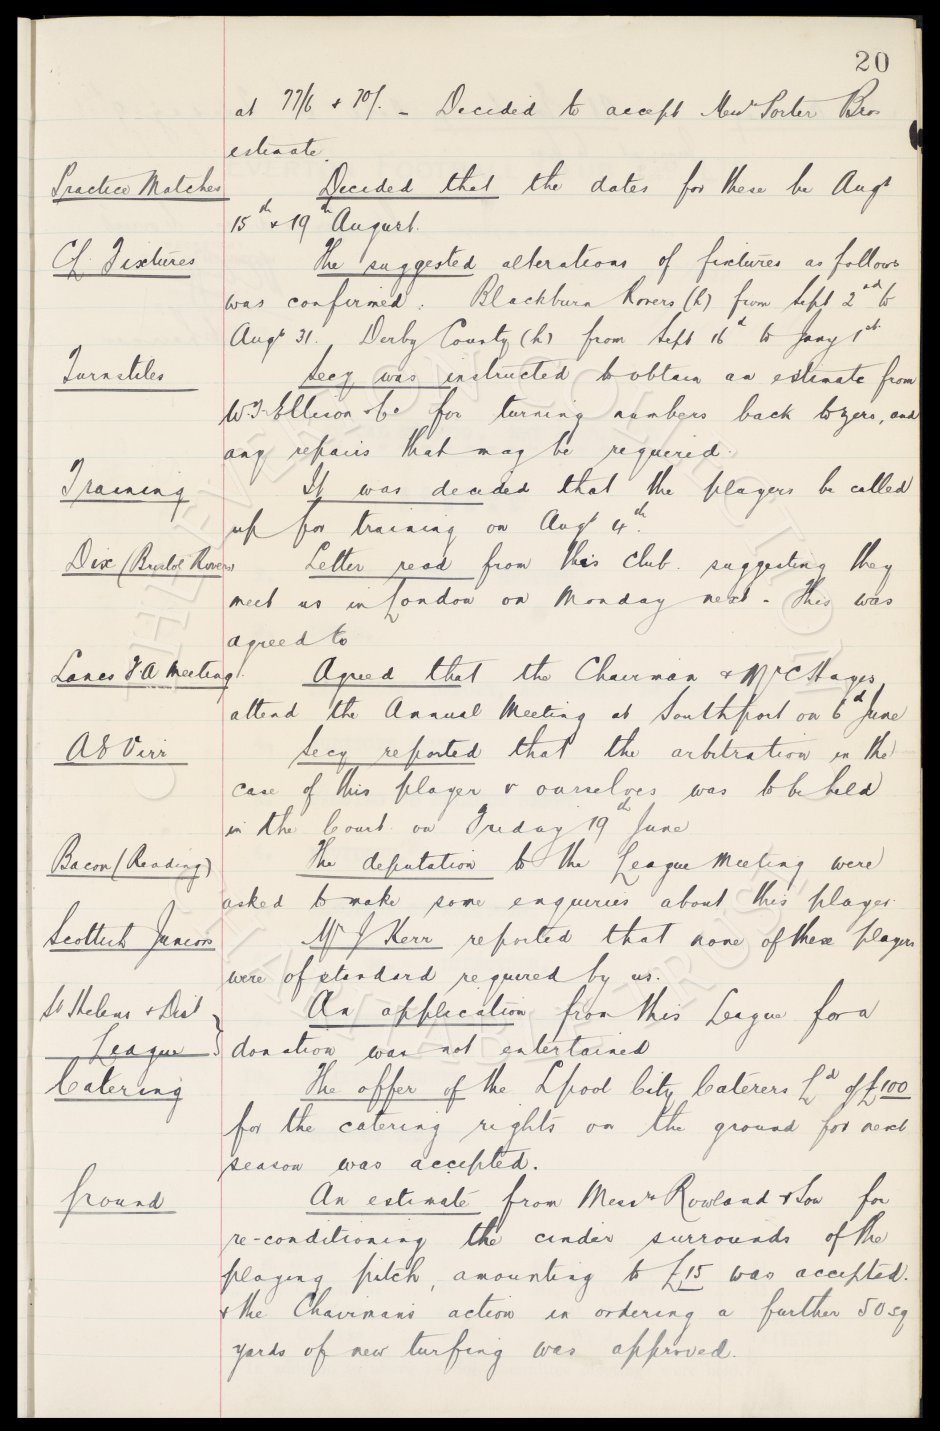 20
at 77/6 & 70/. - Decided to accept Messrs Porter Bros
estimate.
Practice Matches Decided that the dates for these be Augt
15th & 19th August.
CL. Fixtures The suggested alterations of fixtures as follows
was confirmed: Blackburn Rovers (h) from Sept 2nd to
Augt 31. Derby County (h) from Sept 16th to Jany 1st.
Turnstiles Secy was instructed to obtain an estimate from
W.T. Ellison & Co for turning numbers back to zero, and
any repairs that may be required.
Training It was decided that the players be called
up for training on Augt 4th.
Dix (Bristol Rovers) Letter read from this club. suggesting they
meet us in London on Monday next. This was
agreed to
Lancs F.A Meeting. Agreed that the Chairman & Mr C Hayes
attend the Annual Meeting at Southport on 6d June
A E Virr Secy reported that the arbitration in the
case of this player & ourselves was to be held
in the Court on Friday 19th June
Bacon (Reading) The deputation to the League Meeting were
asked to make some enquiries about this player.
Scottish Juniors Mr J Kerr reported that none of these players
were of standard required by us.
St Helens & Dist
League } An application from this League for a
donation was not entertained
Catering The offer of the Lpool City Caterers Ld of £100
for the catering rights on the ground for next
season was accepted.
Ground An estimate from Messrs Rowland & Son for
re-conditioning the cinder surrounds of the
playing pitch, amounting to £15 was accepted.
& the Chairmans action in ordering a further 50 sq
yards of new turfing was approved.